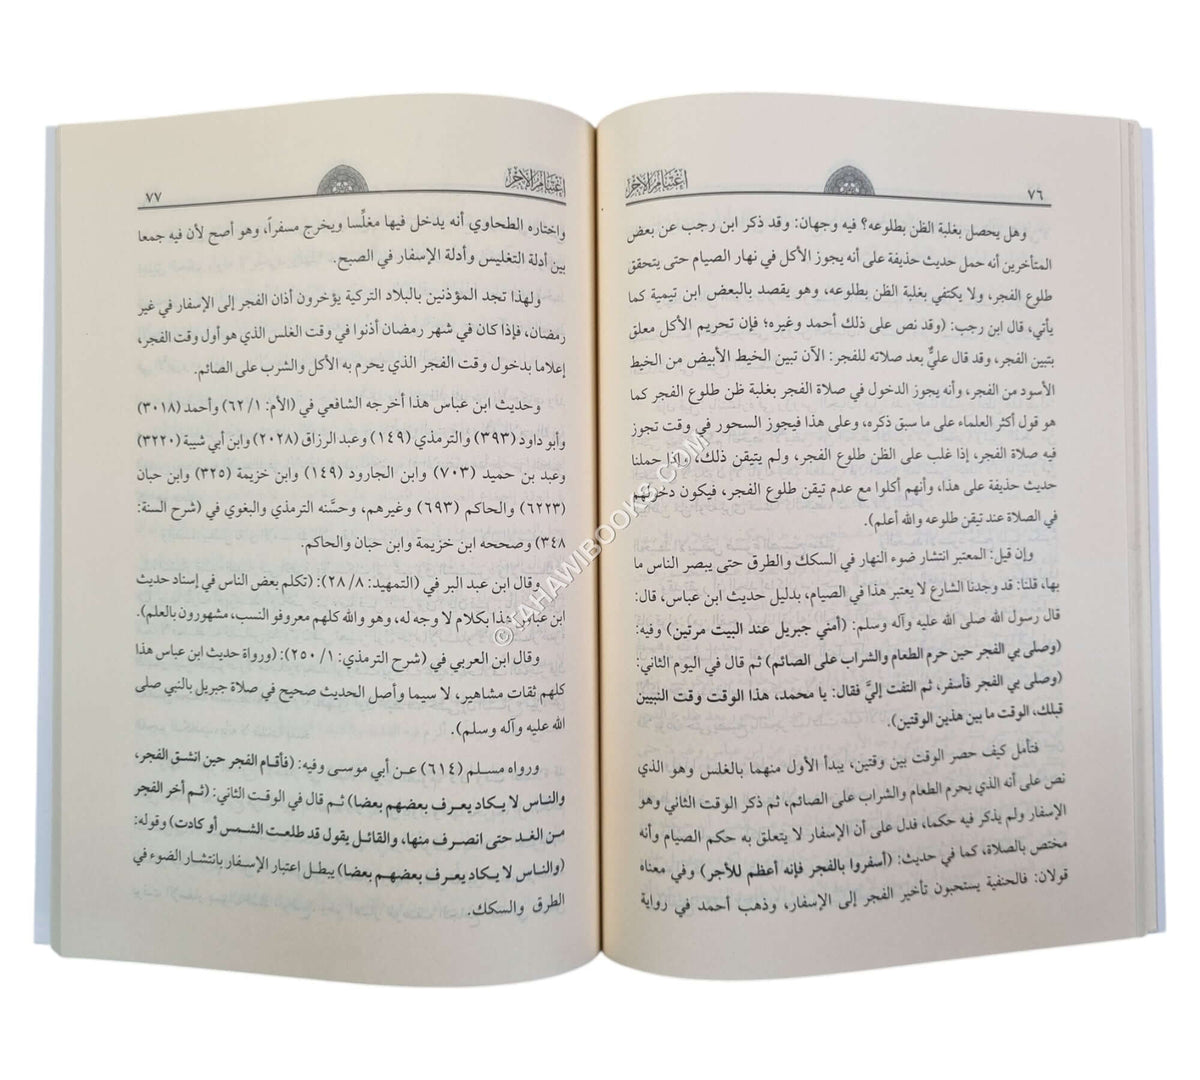 ٧٦
اغتنام الأجر
وهل يحصل بغلبة الظن بطلوعه؟ فيه وجهان: وقد ذكر ابن رجب عن بعض
المتأخرين أنه حمل حديث حذيفة على أنه يجوز الأكل في نهار الصيام حتى يتحقق
طلوع الفجر، ولا يكتفي بغلبة الظن بطلوعه، وهو يقصد بالبعض ابن تيمية كما
يأتي، قال ابن رجب: (وقد نص على ذلك أحمد وغيره؛ فإن تحريم الأكل معلق
بتبين الفجر، وقد قال عليٌّ بعد صلاته للفجر: الآن تبين الخيط الأبيض من الخيط
الأسود من الفجر، وأنه يجوز الدخول في صلاة الفجر بغلبة ظن طلوع الفجر كما
هو قول أكثر العلماء على ما سبق ذكره، وعلى هذا فيجوز السحور في وقت تجوز
فيه صلاة الفجر، إذا غلب على الظن طلوع الفجر، ولم يتيقن ذلك، وإذا حملنا
حديث حذيفة على هذا، وأنهم أكلوا مع عدم تيقن طلوع الفجر، فيكون دخولهم
في الصلاة عند تيقن طلوعه والله أعلم).
وإن قيل: المعتبر انتشار ضوء النهار في السكك والطرق حتى يبصر الناس ما
بها، قلنا: قد وجدنا الشارع لا يعتبر هذا في الصيام، بدليل حديث ابن عباس، قال:
قال رسول الله صلى الله عليه وآله وسلم: (أمني جبريل عند البيت مرتين) وفيه:
(وصلى بي الفجر حين حرم الطعام والشراب على الصائم) ثم قال في اليوم الثاني:
(وصلى بي الفجر فأسفر، ثم التفت إليَّ فقال: يا محمد، هذا الوقت وقت النبيين
قبلك، الوقت ما بين هذين الوقتين).
فتأمل كيف حصر الوقت بين وقتين، يبدأ الأول منهما بالغلس وهو الذي
نص على أنه الذي يحرم الطعام والشراب على الصائم، ثم ذكر الوقت الثاني وهو
الإسفار ولم يذكر فيه حكما، فدل على أن الإسفار لا يتعلق به حكم الصيام وأنه
مختص بالصلاة، كما في حديث: (أسفروا بالفجر فإنه أعظم للأجر) وفي معناه
قولان: فالحنفية يستحبون تأخير الفجر إلى الإسفار، وذهب أحمد في رواية
اغتنام الأجر
٧٧
واختاره الطحاوي أنه يدخل فيها مغلِّسا ويخرج مسفراً، وهو أصح لأن فيه جمعا
بين أدلة التغليس وأدلة الإسفار في الصبح.
ولهذا تجد المؤذنين بالبلاد التركية يؤخرون أذان الفجر إلى الإسفار في غير
رمضان، فإذا كان في شهر رمضان أذنوا في وقت الغلس الذي هو أول وقت الفجر،
إعلاما بدخول وقت الفجر الذي يحرم به الأكل والشرب على الصائم.
وحديث ابن عباس هذا أخرجه الشافعي في (الأم: ١/ ٦٢) وأحمد (٣٠١٨)
وأبو داود (٣٩٣) والترمذي (١٤٩) وعبد الرزاق (٢٠٢٨) وابن أبي شيبة (٣٢٢٠)
وعبد بن حميد (٧٠٣) وابن الجارود (١٤٩) وابن خزيمة (٣٢٥) وابن حبان
(٦٢٢٣) والحاكم (٦٩٣) وغيرهم، وحسَّنه الترمذي والبغوي في (شرح السنة:
٣٤٨) وصححه ابن خزيمة وابن حبان والحاكم.
وقال ابن عبد البر في (التمهيد: ٨/ ٢٨): (تكلم بعض الناس في إسناد حديث
ابن عباس هذا بكلام لا وجه له، وهو والله كلهم معروفو النسب، مشهورون بالعلم).
وقال ابن العربي في (شرح الترمذي: ١/ ٢٥٠): (ورواة حديث ابن عباس هذا
كلهم ثقات مشاهير، لا سيما وأصل الحديث صحيح في صلاة جبريل بالنبي صلى
الله عليه وآله وسلم).
ورواه مسلم (٦١٤) عن أبي موسى وفيه: (فأقام الفجر حين انشق الفجر،
والناس لا يكاد يعرف بعضهم بعضا) ثم قال في الوقت الثاني: (ثم أخر الفجر
من الغد حتى انصرف منها، والقائل يقول قد طلعت الشمس أو كادت) وقوله:
(والناس لا يكاد يعرف بعضهم بعضا) يبطل اعتبار الإسفار بانتشار الضوء في
الطرق والسكك.
© TAHAWIBOOKS.COM